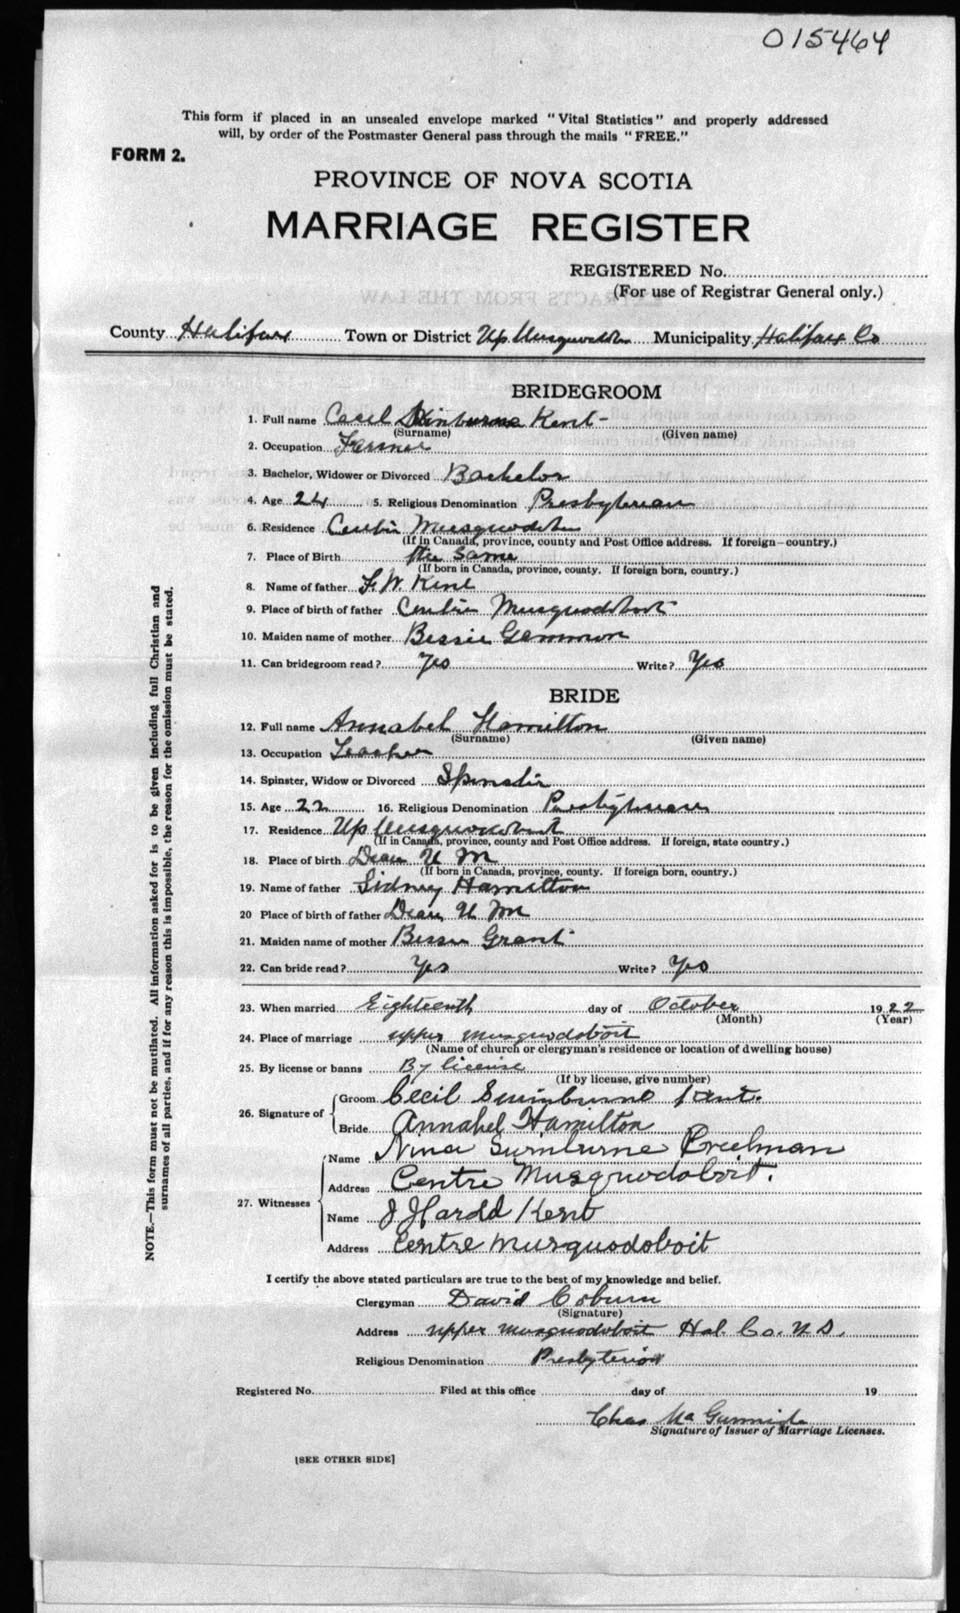 015464
This form if placed in an unsealed envelope marked "Vital Statistics" and properly addressed
will, by order of the Postmaster General pass through the mails "FREE."
FORM 2.
PROVINCE OF NOVA SCOTIA
MARRIAGE REGISTER
REGISTERED No.
(For use of Registrar General only.)
County Halifax Town or District Up. Musquodoboit Municipality Halifax Co
BRIDEGROOM
1. Full name Cecil Swinburne Kent
(Surname) (Given name)
2. Occupation Farmer
3. Bachelor, Widower or Divorced Bachelor
4. Age 24 5. Religious Denomination Presbyterian
6. Residence Centre Musquodoboit
(If in Canada, province, county and Post Office address. If foreign—country.)
7. Place of Birth the same
(If born in Canada, province, county. If foreign born, country.)
8. Name of father F. W. Kent
9. Place of birth of father Centre Musquodoboit
10. Maiden name of mother Bessie Gammon
11. Can bridegroom read? Yes Write? Yes
BRIDE
12. Full name Annabel Hamilton
(Surname) (Given name)
13. Occupation Teacher
14. Spinster, Widow or Divorced Spinster
15. Age 22 16. Religious Denomination Presbyterian
17. Residence Up Musquodoboit
(If in Canada, province, county and Post Office address. If foreign, state country.)
18. Place of birth Dean U M
(If born in Canada, province, county. If foreign born, country.)
19. Name of father Sidney Hamilton
20 Place of birth of father Dean U M
21. Maiden name of mother Bessie Grant
22. Can bride read? Yes Write? Yes
23. When married Eighteenth day of October 1922
(Month) (Year)
24. Place of marriage upper musquodoboit
(Name of church or clergyman's residence or location of dwelling house)
25. By license or banns By license
(If by license, give number)
26. Signature of Groom Cecil Swinburne Kent.
Bride Annabel Hamilton
27. Witnesses Name Nina Swinburne Creelman
Address Centre Musquodoboit.
Name J Harold Kent
Address Centre Musquodoboit
I certify the above stated particulars are true to the best of my knowledge and belief.
Clergyman David Coburn
(Signature)
Address upper musquodoboit Hal. Co. N.S.
Religious Denomination Presbyterian
Registered No. Filed at this office day of 19
Chas
Signature of Issuer of Marriage Licenses.
[SEE OTHER SIDE]
NOTE.—This form must not be mutilated. All information asked for is to be given including full Christian and
surnames of all parties, and if for any reason this is impossible, the reason for the omission must be stated.